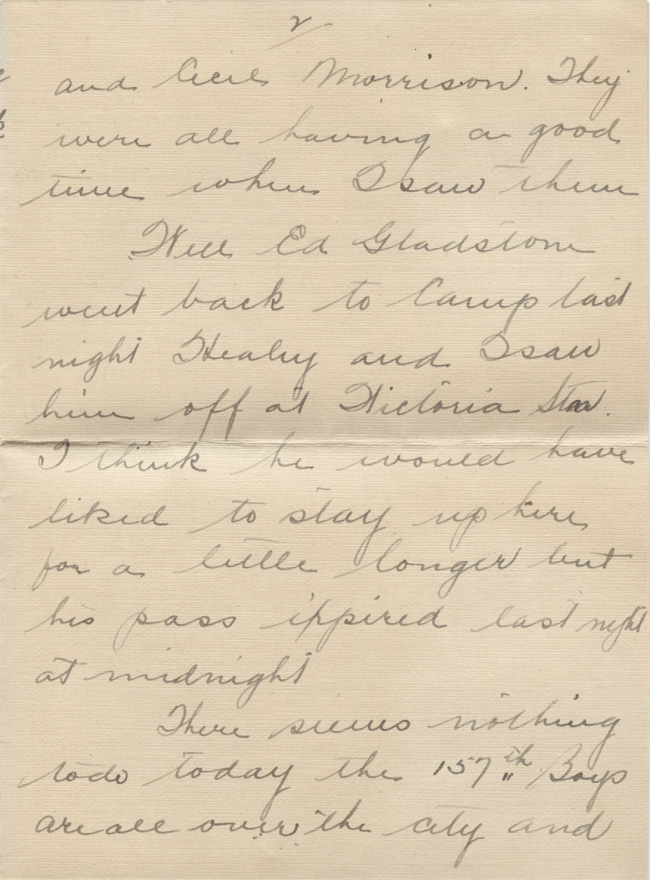 2
and Cecil Morrison. They
were all having a good
time when I saw them
Well Ed Gladstone
went back to Camp last
night Healey and I saw
him off at Victoria Sta.
I think he would have
liked to stay up here
for a little longer but
his pass ippired last night
at midnight
There seems nothing
to do today the 157th Boys
are all over the city and